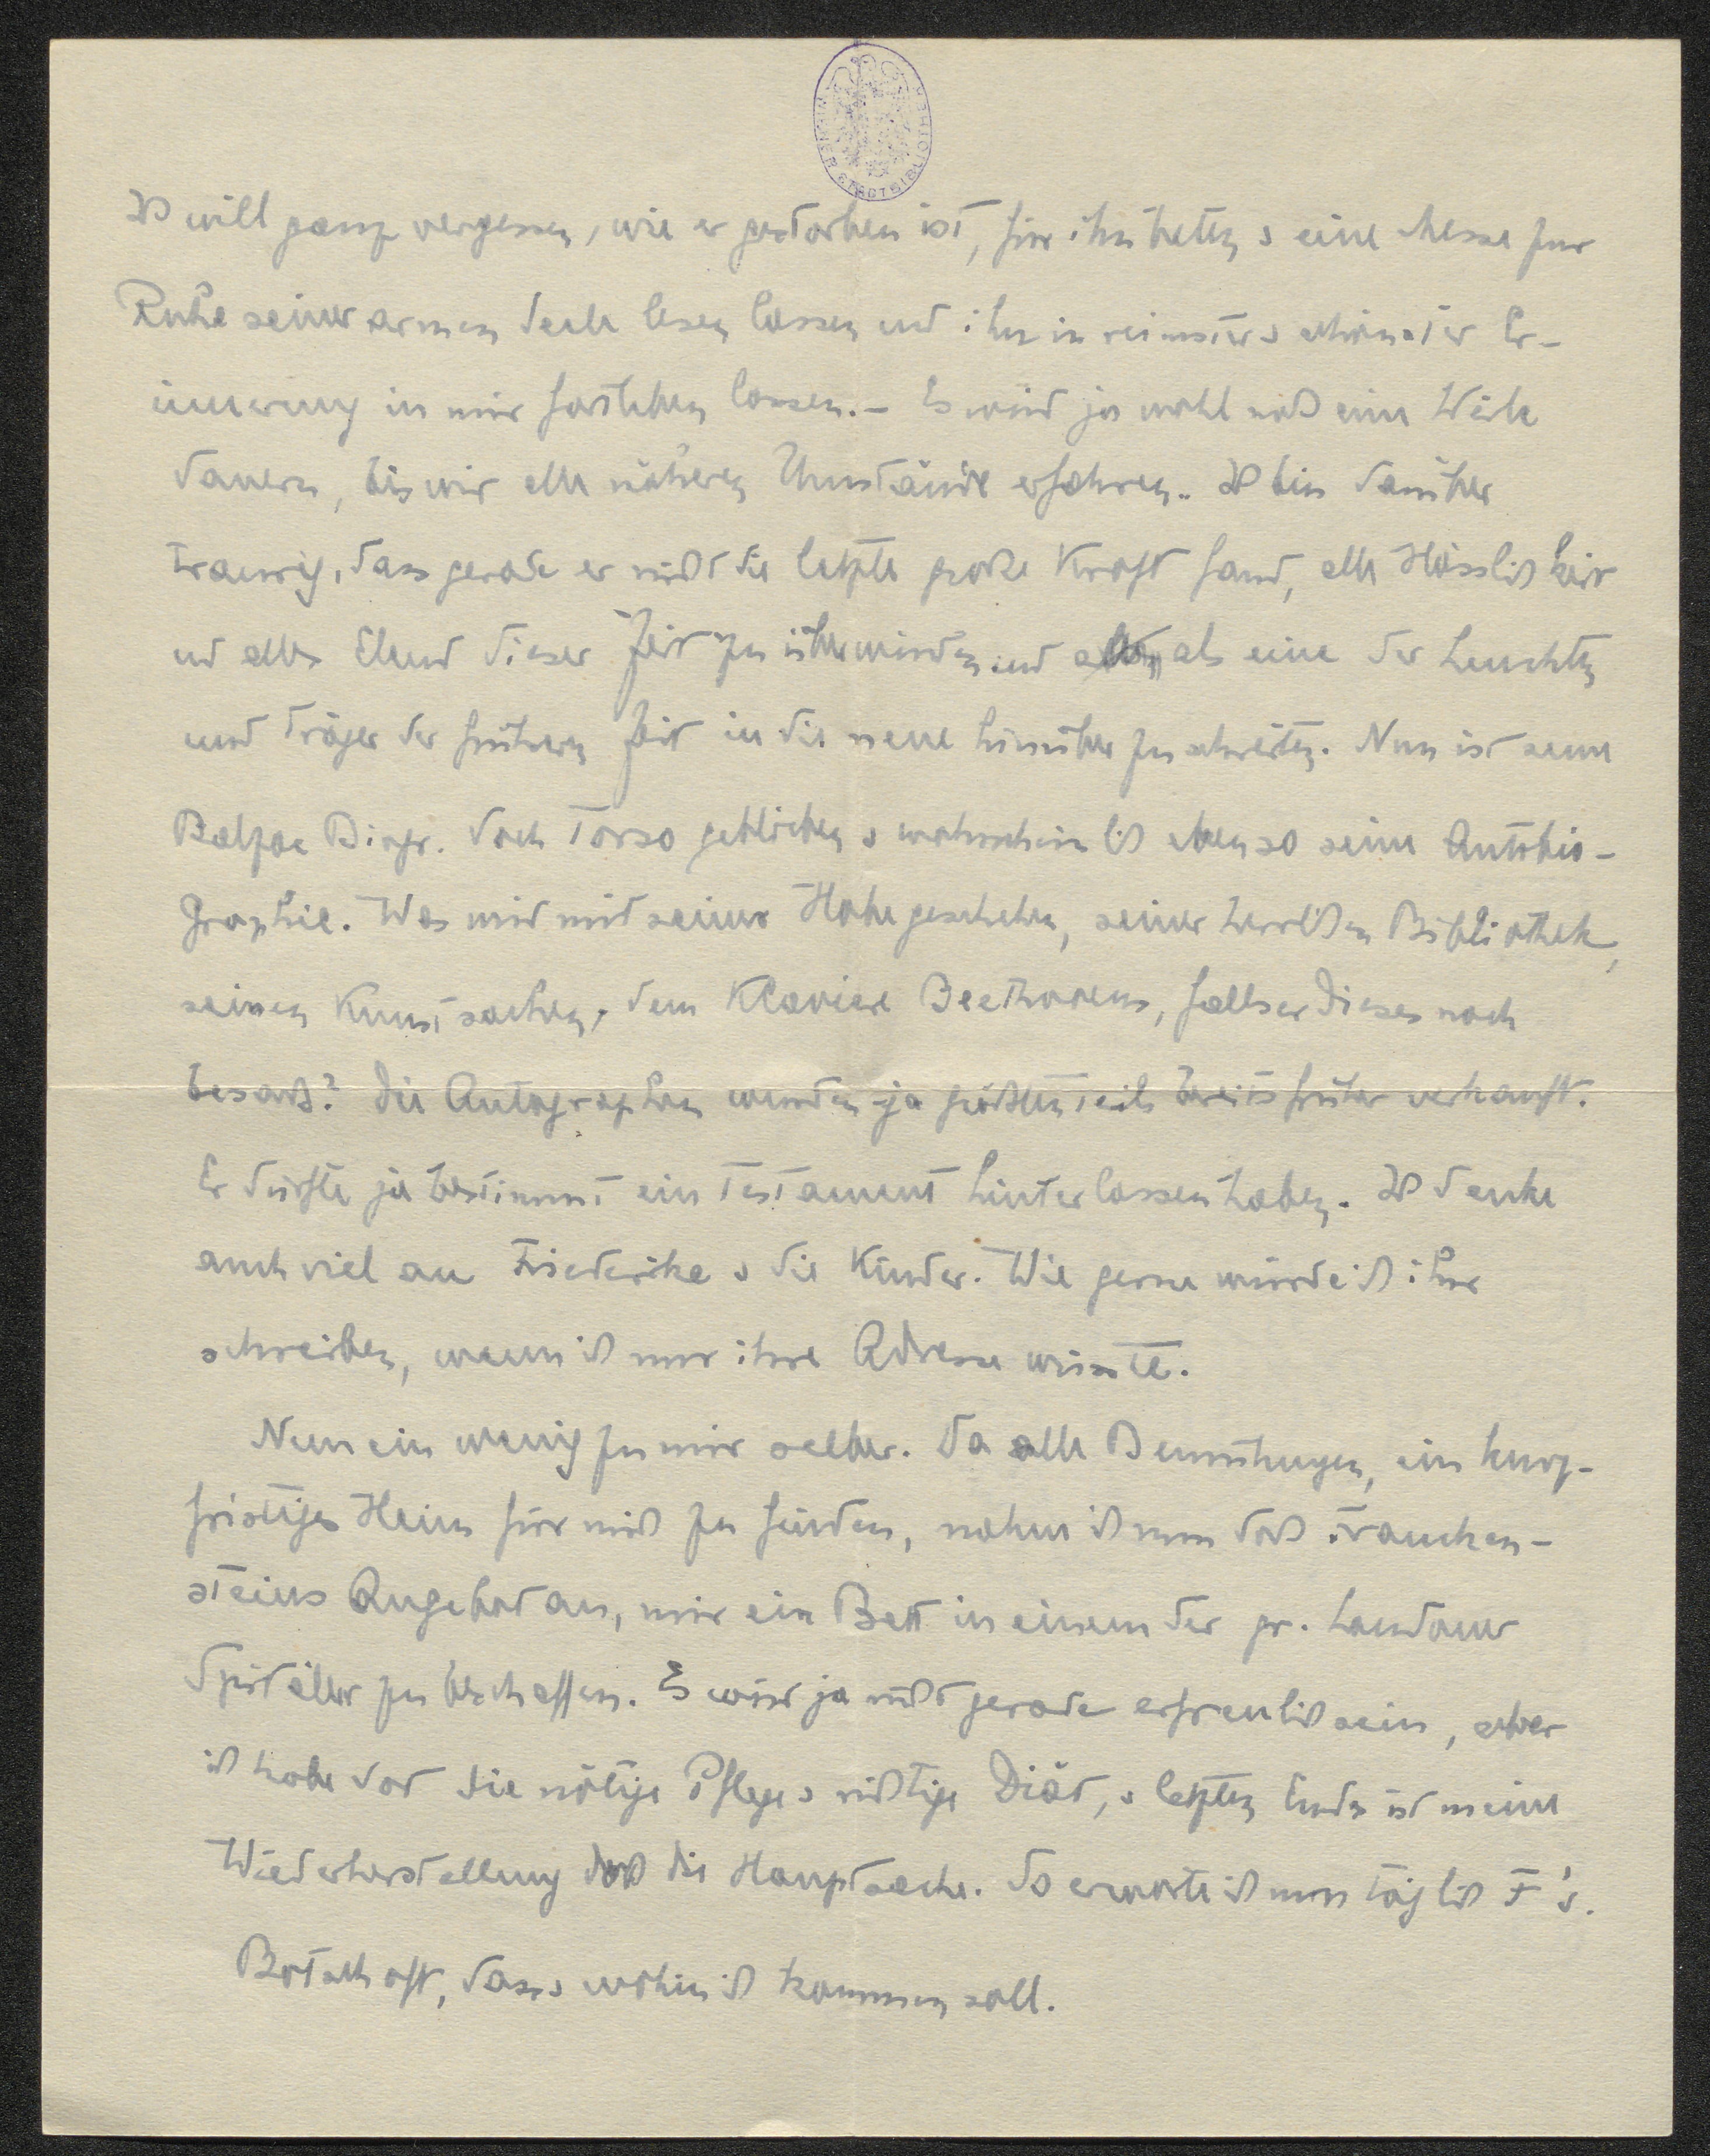 WIENER STADTBIBLIOTHEK
Ich will ganz vergessen, wie er gestorben ist, für ihn beten & eine Messe zur
Ruhe seiner armen Seele lesen lassen und ihn in reinster & schönster Er-
innerung in mir fortleben lassen. – Es wird ja wohl noch eine Weile
dauern, bis wir alle näheren Umstände erfahren. Ich bin darüber
traurig, dass gerade er nicht die letzte große Kraft fand, alle Hässlichkeit
und alles Elend dieser Zeit zu überwinden und als eine der Leuchten
und Träger der früheren Zeit in die neue hinüber zu schreiten. Nun ist seine
Balzac Biogr. doch Torso geblieben & wahrscheinlich ebenso seine Autobio-
graphie. Was wird mit seiner Habe geschehen, seiner herrlichen Bibliothek,
seinen Kunstsachen, dem Klaviere Beethovens, falls er dieses noch
besaß? Die Autographen wurden ja größtenteils bereits früher verkauft.
Er dürfte ja bestimmt ein Testament hinterlassen haben. Ich denke
auch viel an Friederike & die Kinder. Wie gerne würde ich ihr
schreiben, wenn ich nur ihre Adresse wüsste.
Nun ein wenig zu mir selber. Da alle Bemühungen, ein kurz-
fristiges Heim für mich zu finden, nahm ich nun doch Trauken-
steins Angebot an, mir ein Bett in einem der gr. Londoner
Spitäler zu beschaffen. Es wird ja nicht gerade erfreulich sein, aber
ich habe dort die nötige Pflege & richtige Diät, & letzten Endes ist meine
Wiederherstellung doch die Hauptsache. So erwarte ich nun täglich F's.
Botschaft, dass & wohin ich kommen soll.